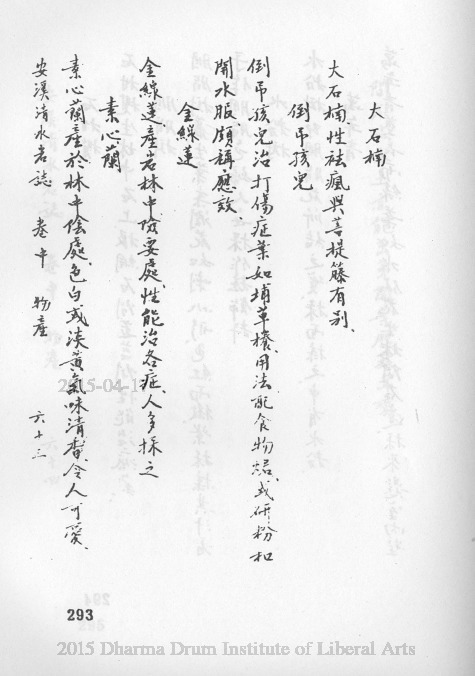 大石楠
大石楠性祛瘋與菩提藤有别、
倒吊孩兒
倒吊孩兒治打傷症葉如埔草樣、用法配食物燉、或研粉和
開水服頗稱應效、
金線蓮
金線蓮產岩林中陰處、性能治各症、人多採之
素心蘭
素心蘭產於林中陰處、色白或淡黃氣味清香、令人可愛、
安溪清水岩誌 卷中 物產 六十三
293
2015-04-1
2015 Dharma Drum Institute of Liberal Arts